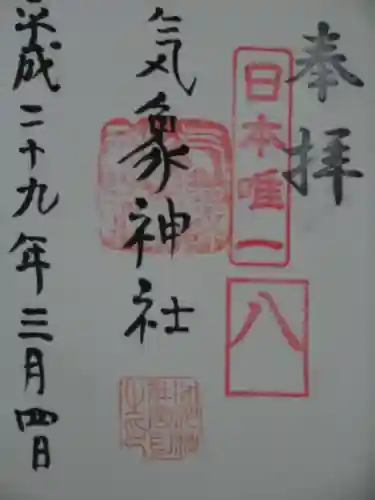 奉拝
日本唯一
八
気象神社
平成二十九年三月四日